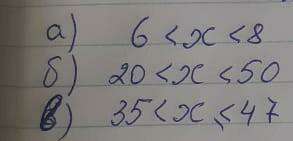 а) 6 < x < 8
б) 20 < x < 50
в) 35 < x < 47